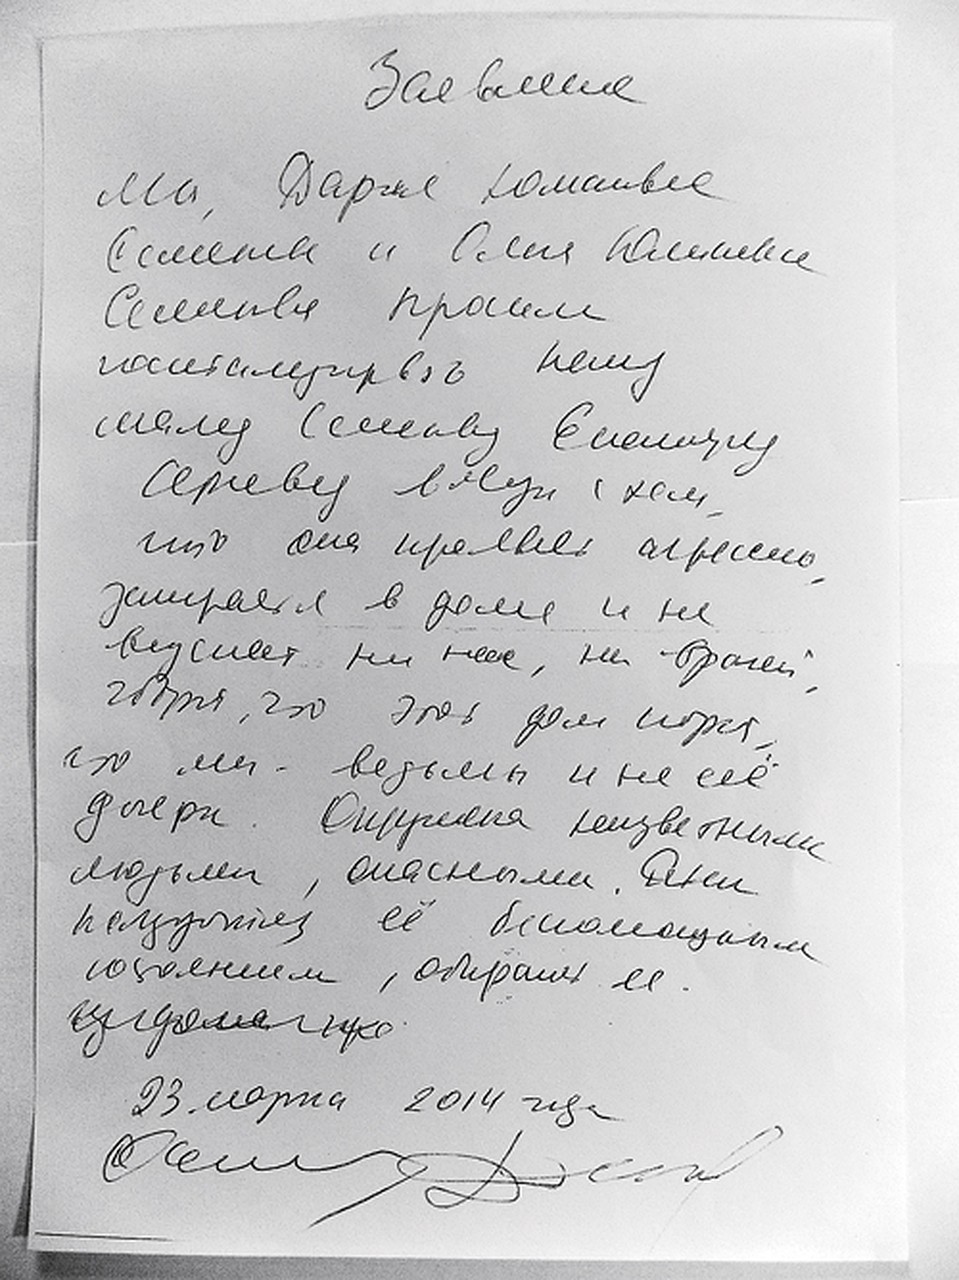 Заявление
Мы, Дарья Юльевна
Семенова и Юльевна
Семенова просим
госпитализировать нашу
маму Семенову
в связи с тем,
что она проявляет агрессию,
запирается в доме и не
впускает ни нас, ни врачей,
говоря, что этот дом
что мы - ведьмы и не её
дочери. Окружена неизвестными
людьми, опасными. Они
пользуются её беспомощным
состоянием, обирают ее.
23 марта 2014 года